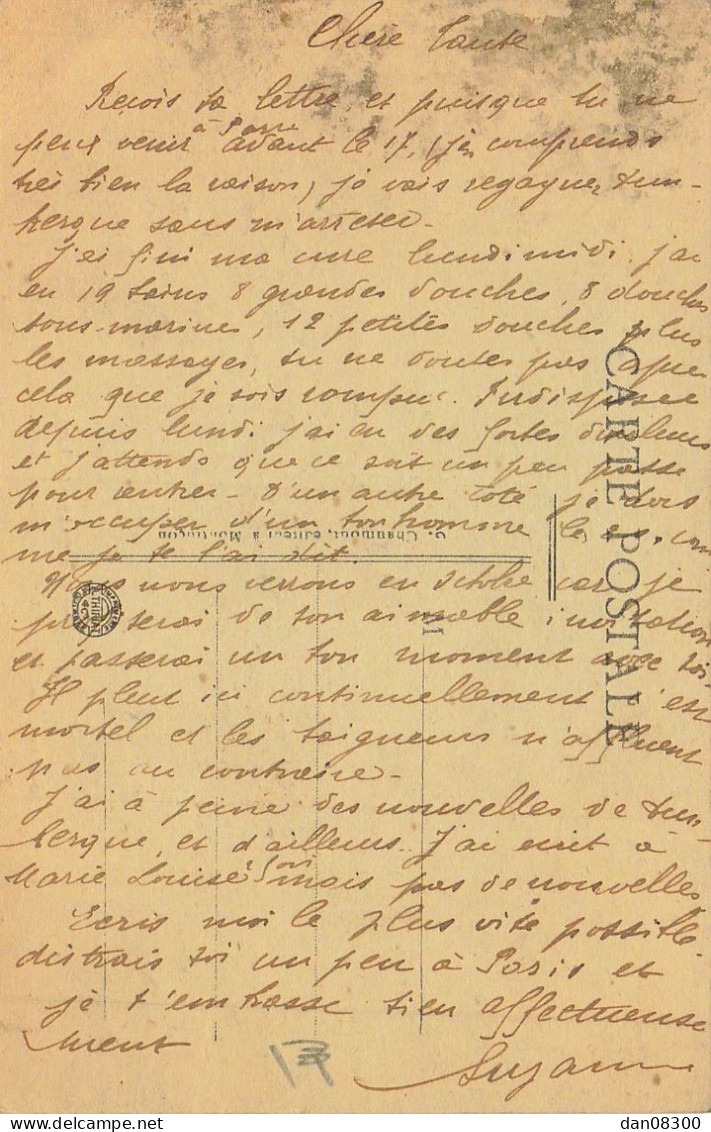 Chère Tante
Reçois ta lettre, et puisque tu ne
peux venir à Paris avant le 17, (j'en comprends
très bien la raison) je vais regagner Dun-
kerque sans m'arrêter.
J'ai fini ma cure lundi midi. j'ai
eu 19 bains 8 grandes douches, 8 douches
sous-marines, 12 petites douches plus
les massages, tu ne doutes pas après
cela que je sois rompue. Indisposée
depuis lundi j'ai eu des fortes douleurs
et j'attends que ce soit un peu passé
pour rentrer - D'un autre côté je dois
m'occuper d'un bonhomme com
me je te l'ai dit.
Nous nous verrons en octobre car je
profiterai de ton aimable invitation
et passerai un bon moment avec toi.
Il pleut ici continuellement c'est
mortel et les baigneurs n'affluent
pas au contraire -
J'ai à peine des nouvelles de Dun-
kerque, et d'ailleurs. J'ai écrit à
Marie Louise mais pas de nouvelles
Ecris moi le plus vite possible
distrais toi un peu à Paris et
je t'embrasse bien affectueuse
ment
Suzanne
13
CARTE POSTALE
G. Chaumont, éditeur à Montluçon
dan08300